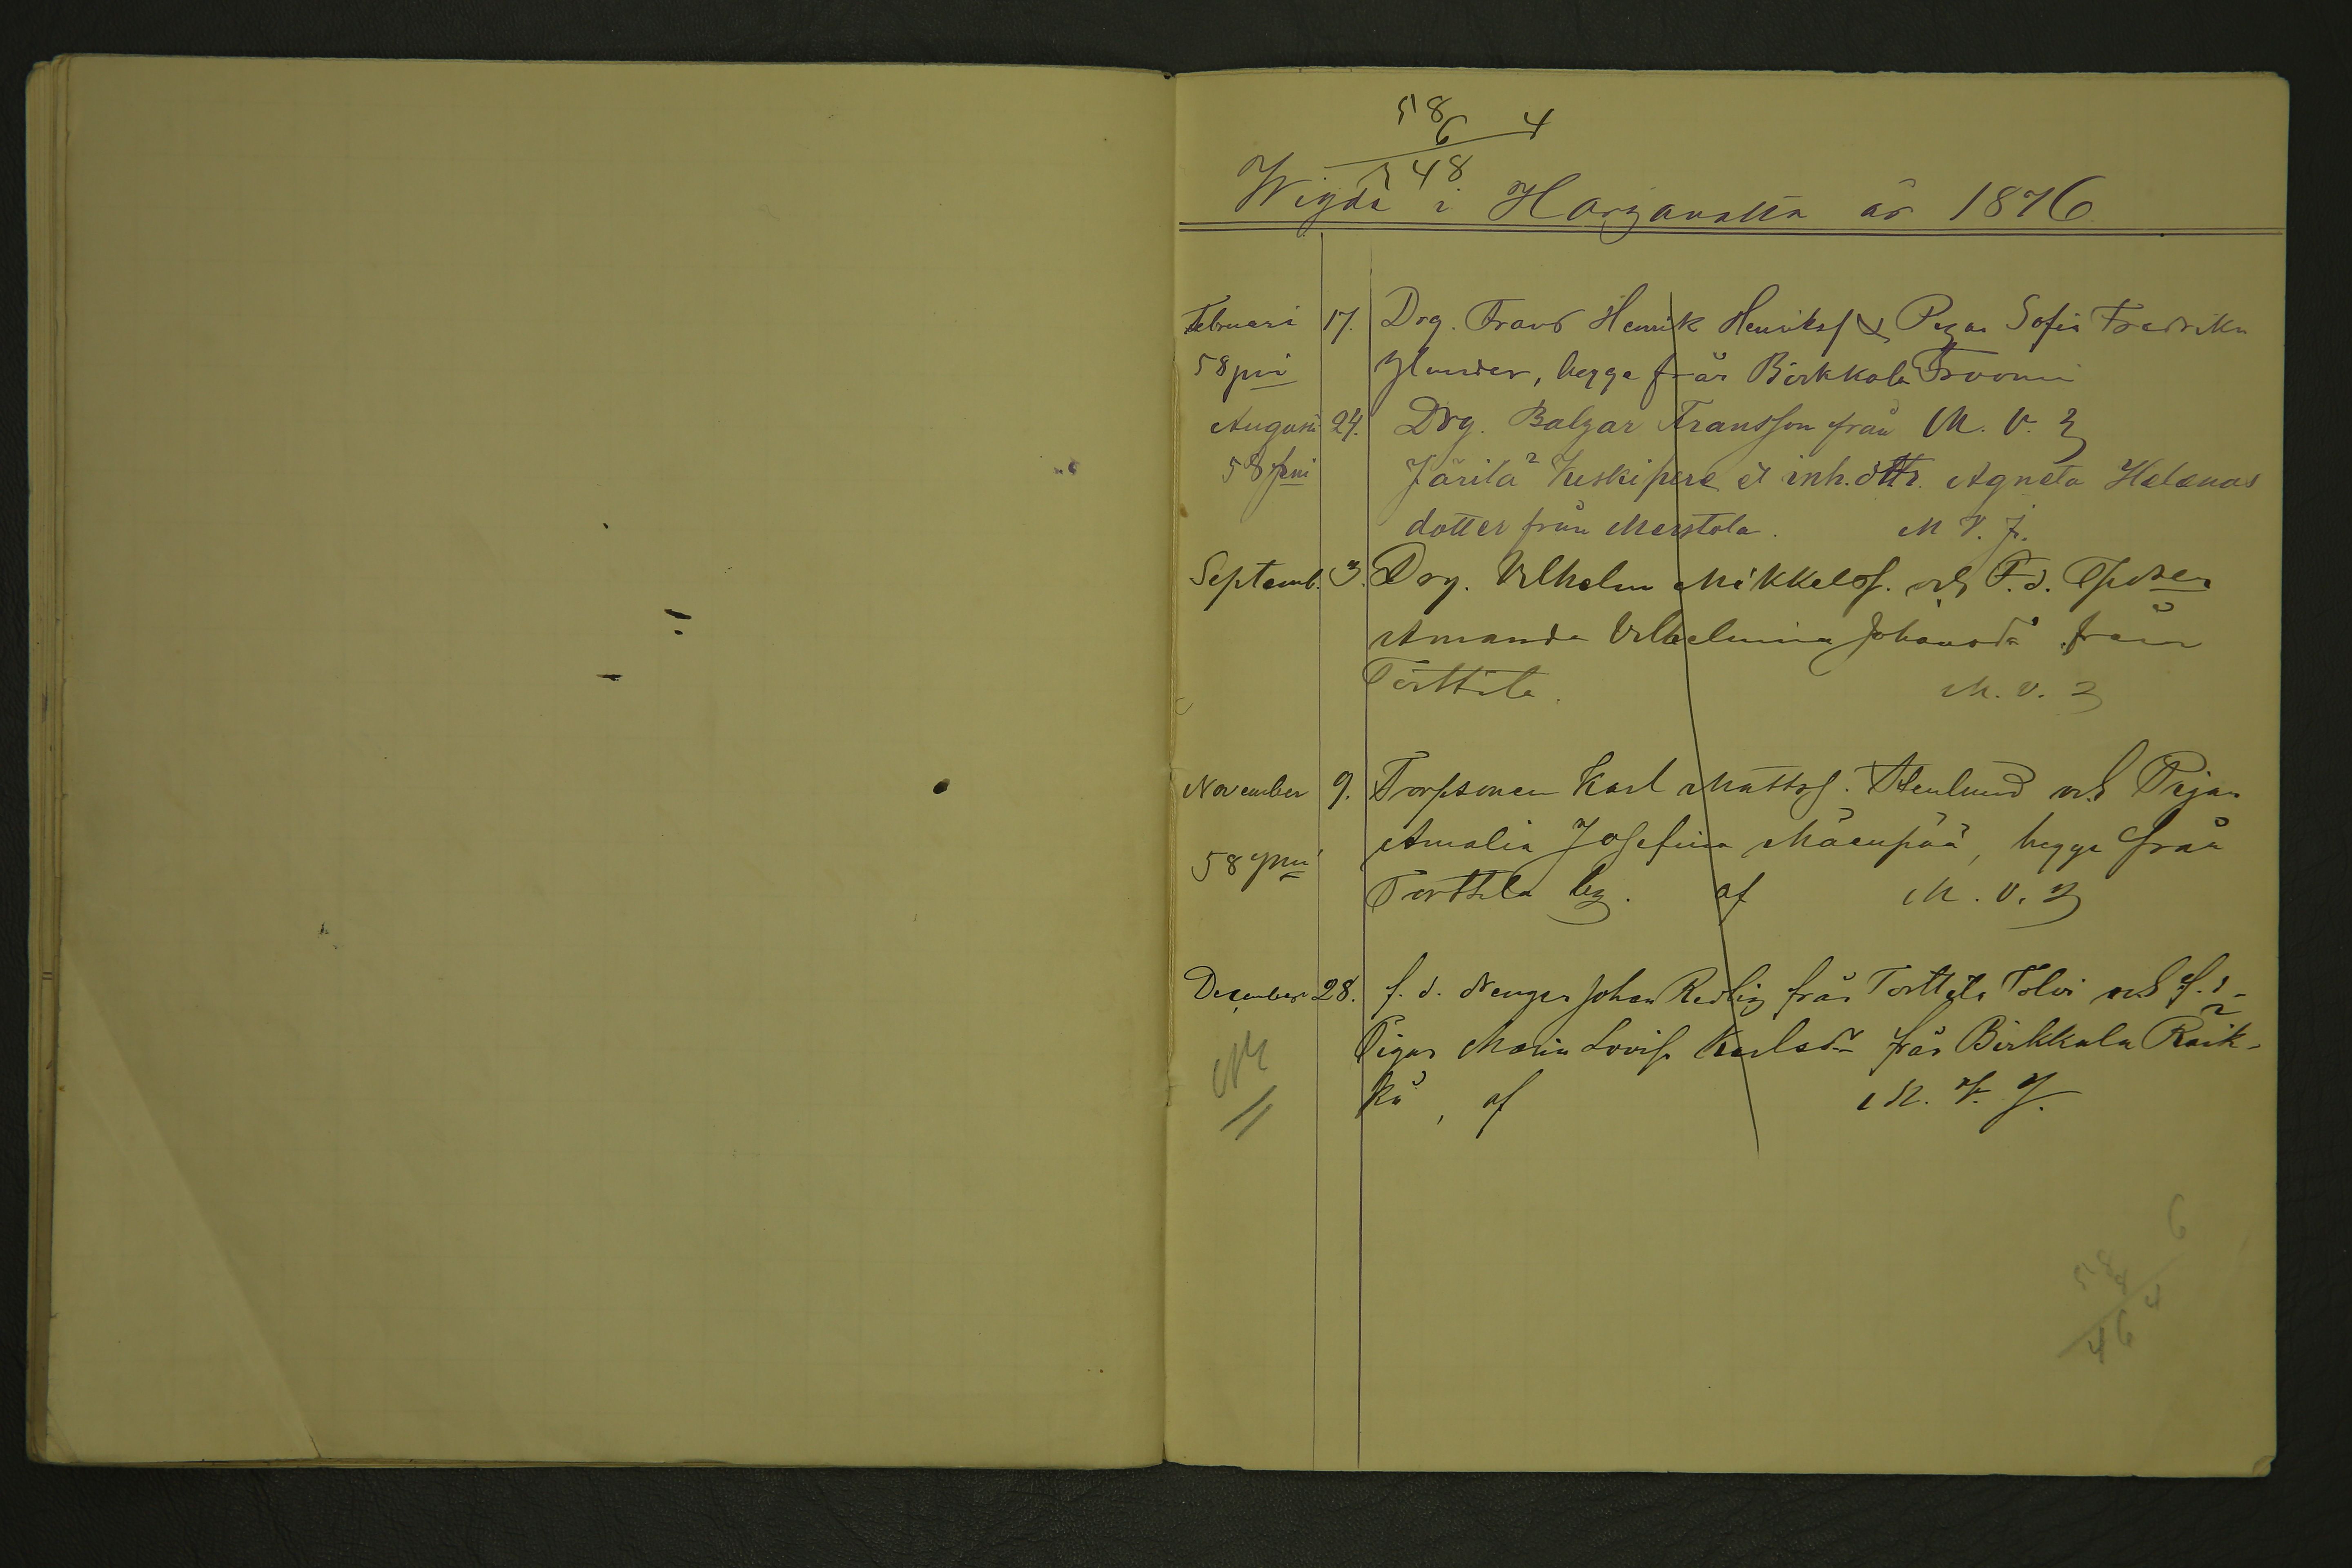 58
6 4
348
Wigda i Harjavalta år 1876
Februari 17. Drg. Frans Henrik Henrikss. & Pigan Sofia Fredrika
58 pni Ylander, begge från Birkkala
Augusti 24. Drg. Balzar Fransson från M. V.
58 pni Järilä Keskipere et inh. dttr. Agneta Helenas
dotter från Merstola. M V. J.
Septemb. 3. Drg. Vilhelm Mikkelss. och F. d.
Amanda Vilhelmina Johansdr från
Torttila. M. V.
November 9. Torpsonen Karl Mattss. Stenlund och Pigan
58 pni Amalia Josefina Mäenpää, begge från
Torttila by. af M. V.
December 28. f. d. Drengen Johan Redlig från Torttila Tolvi och f. d.
Pigan Maria Lovisa Karlsdr från Birkkala Räik-
kä, af M. V. J.
6
58 4
46